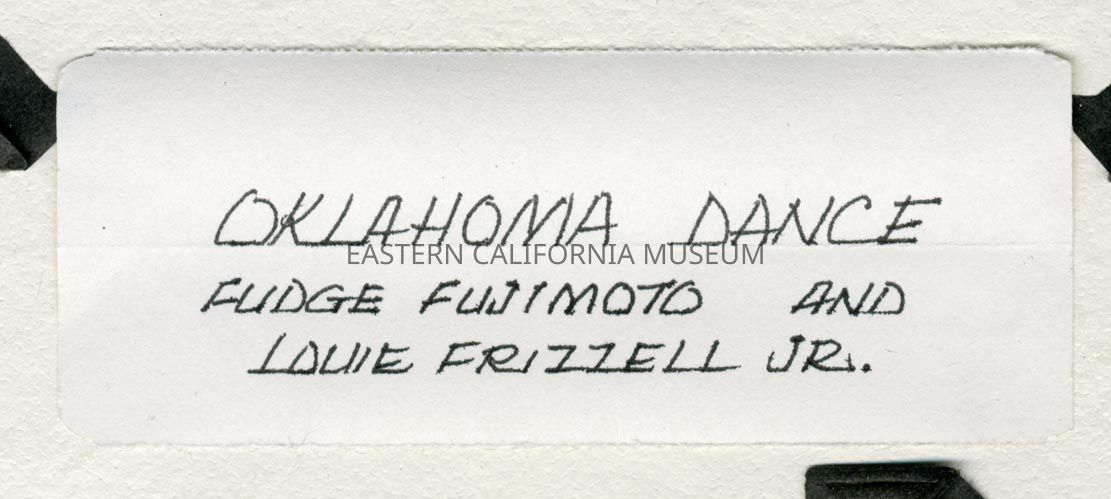 OKLAHOMA DANCE
EASTERN CALIFORNIA MUSEUM
FUDGE FUJIMOTO AND
LOUIE FRIZZELL JR.